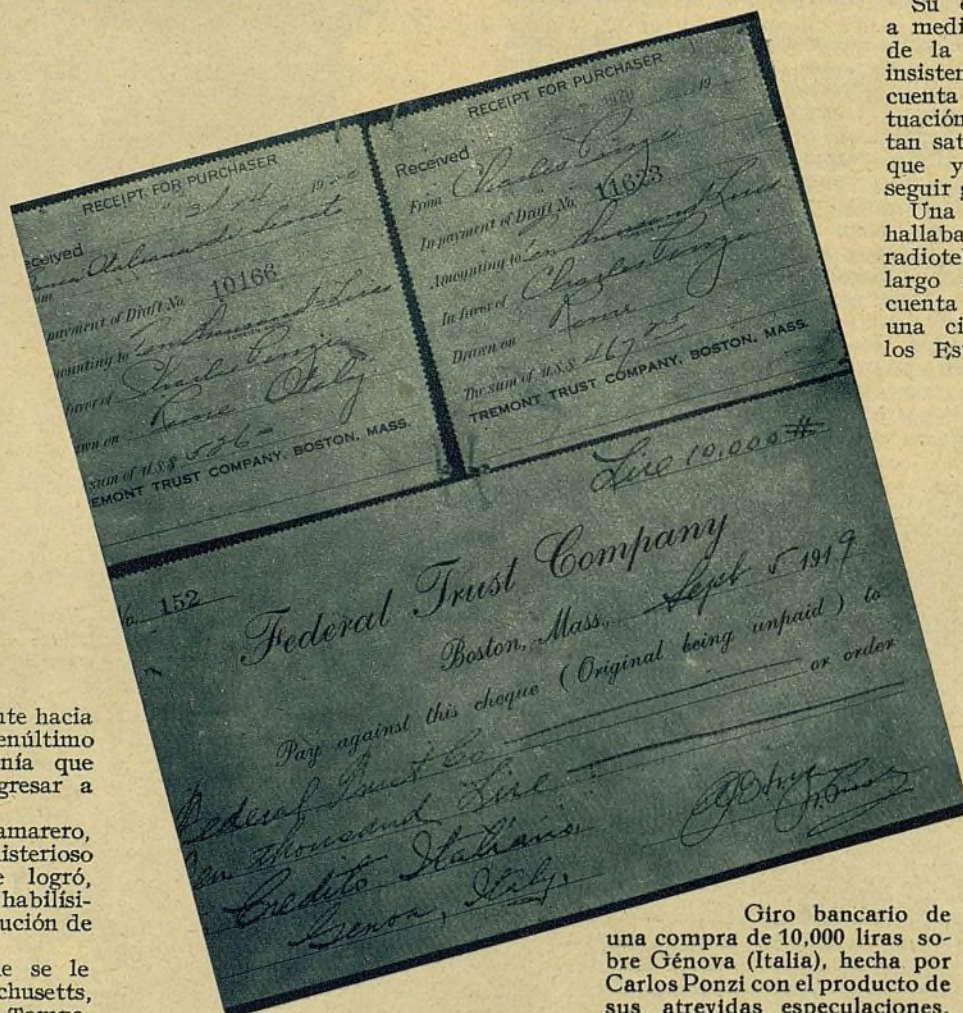 Su
a medi
de la
insisten
cuenta
tuación
tan sat
que y
seguir g
Una
hallaba
radiotel
largo
cuenta
una ci
los Es
RECEIPT FOR PURCHASER
eceived
payment of Draft No. 10166
ounting to Ten thousand Lire
favor of Charles Ponzi
wn on Rome Italy
sum of U.S.$ 526
EMONT TRUST COMPANY, BOSTON, MASS.
RECEIPT FOR PURCHASER
1920 19
Received
From Charles Ponzi
In payment of Draft No. 11623
Amounting to Ten thousand Lire
In favor of Charles Ponzi
Drawn on Rome
The sum of U.S.$ 467
TREMONT TRUST COMPANY, BOSTON, MASS.
Lire 10,000
152
Federal Trust Company
Boston, Mass., Sept 5 1919
Pay against this cheque (Original being unpaid) to
Federal Trust Co or order
Ten thousand Lire
Credito Italiano
Genoa, Italy.
nte hacia
enúltimo
nía que
gresar a
amarero,
isterioso
e logró,
habilísi-
ución de
e se le
chusetts,
Giro bancario de
una compra de 10,000 liras so-
bre Génova (Italia), hecha por
Carlos Ponzi con el producto de
sus atrevidas especulaciones.